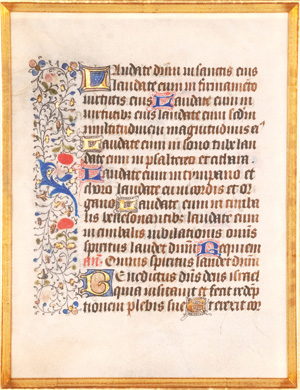 Laudate dnm in sanctis eius
laudate eum in firmamento
virtutis eius Laudate eum in
virtutibus eius laudate eum secun
multitudinem magnitudinis e
Laudate eum in sono tube lau
date eum in psalterio et cithara
Laudate eum in tympano et
choro laudate eum in cordis et or
gano Laudate eum in cimba
lis benesonantibus laudate eum
in cimbalis iubilationis omnis
spiritus laudet dnm Requiem
Omnis spiritus laudet dnm
Benedictus dns deus israel
quia visitavit et fecit redep
tionem plebis sue Et erexit cor